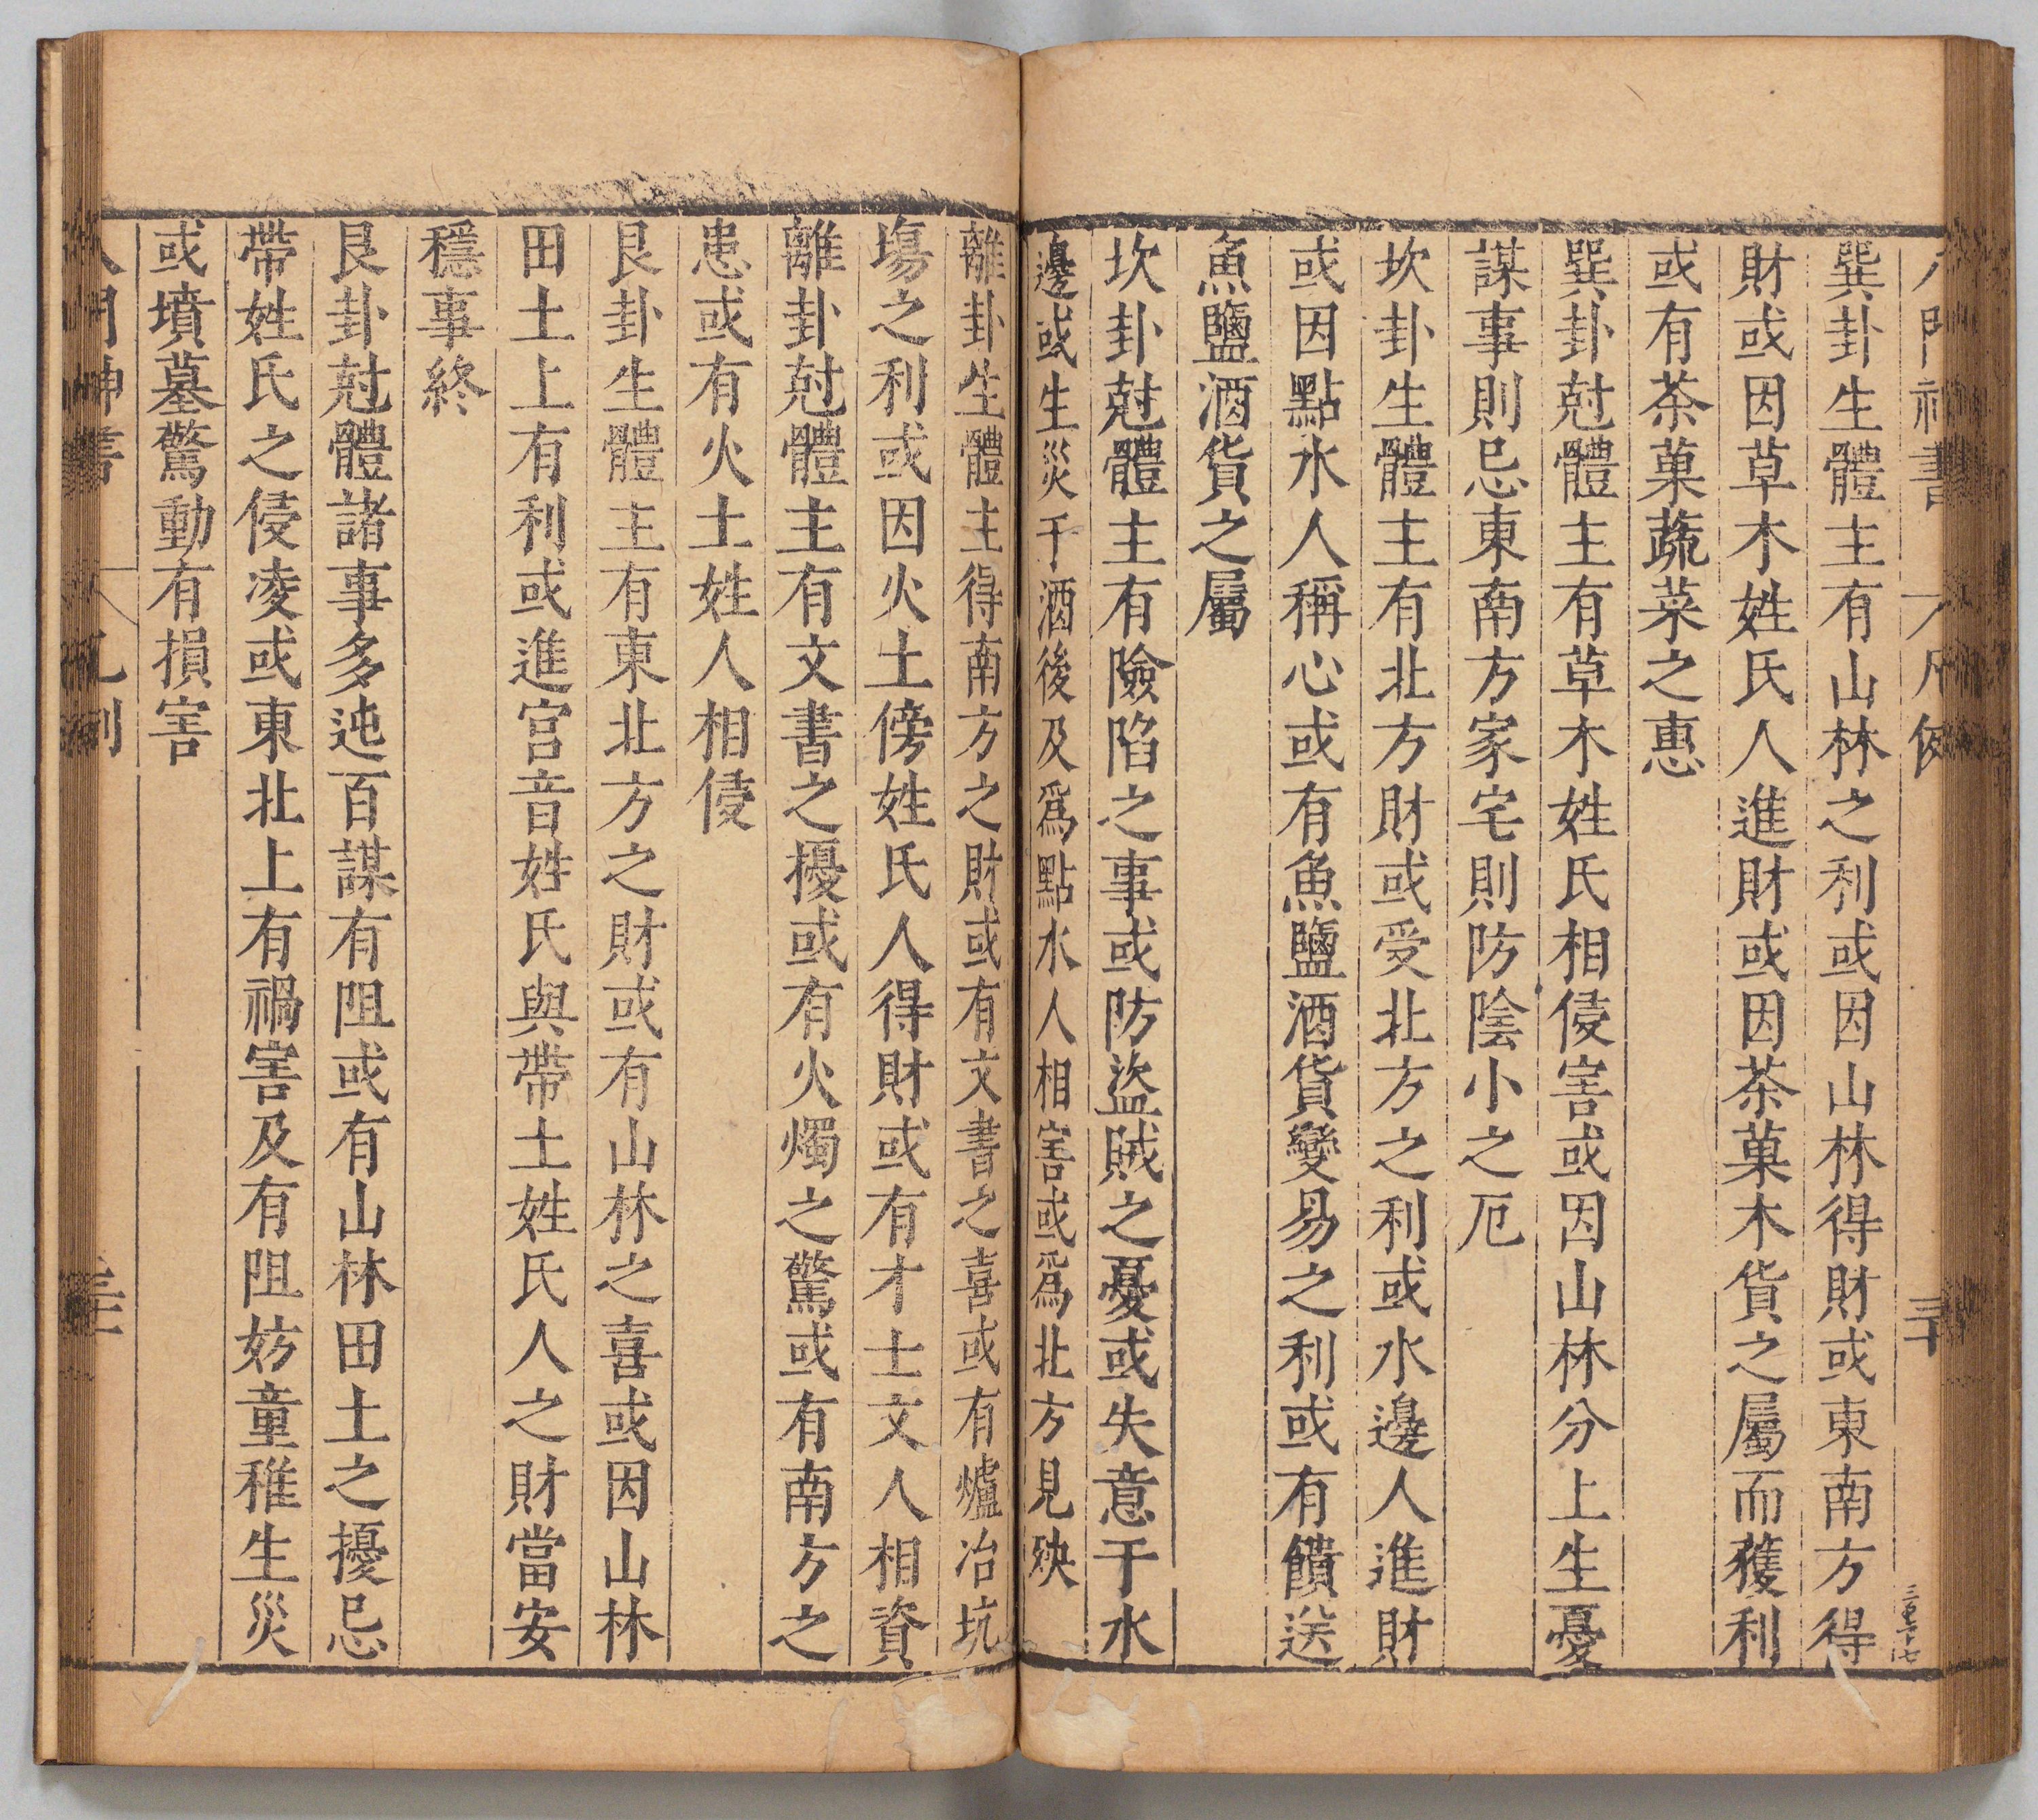 八門神書 凡例 三十 三百十七
巽卦生體主有山林之利或因山林得財或東南方得
財或因草木姓氏人進財或因茶菓木貨之屬而獲利
或有茶菓蔬菜之惠
巽卦尅體主有草木姓氏相侵害或因山林分上生憂
謀事則忌東南方家宅則防陰小之厄
坎卦生體主有北方財或受北方之利或水邊人進財
或因點水人稱心或有魚鹽酒貨變易之利或有饋送
魚鹽酒貨之屬
坎卦尅體主有險陷之事或防盜賊之憂或失意于水
邊或生災于酒後及爲點水人相害或爲北方見殃
離卦生體主得南方之財或有文書之喜或有爐冶坑
塲之利或因火土傍姓氏人得財或有才士文人相資
離卦尅體主有文書之擾或有火燭之驚或有南方之
患或有火土姓人相侵
艮卦生體主有東北方之財或有山林之喜或因山林
田土上有利或進宮音姓氏與帶土姓氏人之財當安
穩事終
艮卦尅體諸事多迍百謀有阻或有山林田土之擾忌
帶姓氏之侵凌或東北上有禍害及有阻妨童稚生災
或墳墓驚動有損害
八門神書 凡例